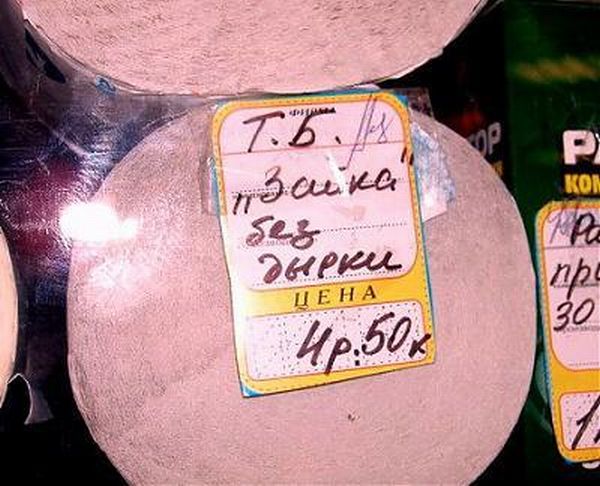 Т.Б.
"Зайка"
без
дырки
ЦЕНА
4р.50к
ОР
Р
КОМ
Ра
при
30